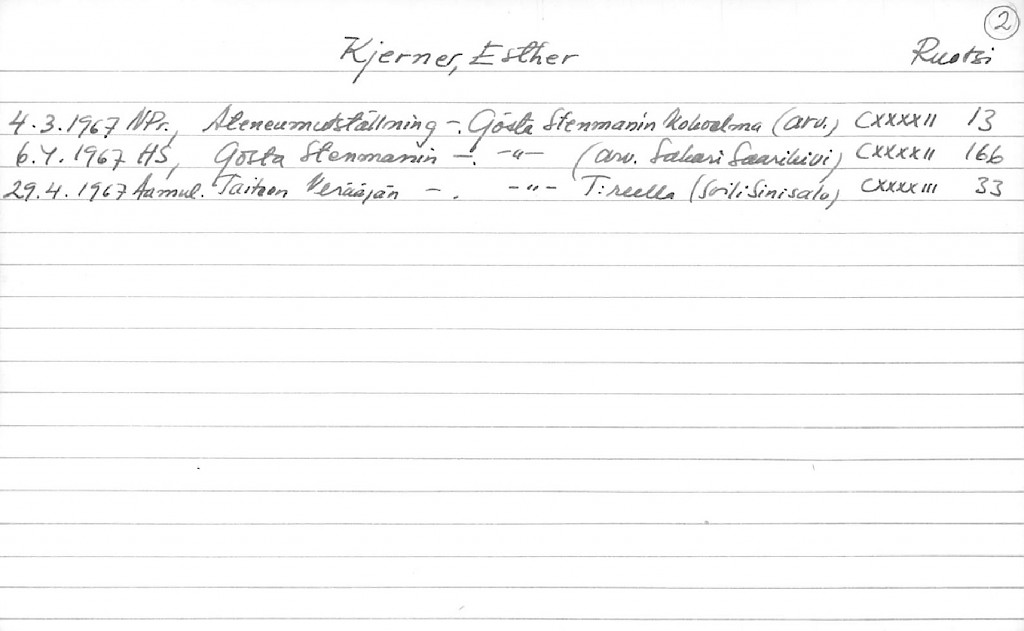 2
Kjerner, Esther Ruotsi
4.3.1967 NPr., Ateneumutställning - . Gösta Stenmanin kokoelma (arv.) CXXXXII 13
6.4.1967 HS, Gösta Stenmanin - . -"- (arv. Sakari Saarikivi) CXXXXII 166
29.4.1967 Aamul. Taiteen Kerääjän - . -"- T:reella (Soili Sinisalo) CXXXXIII 33